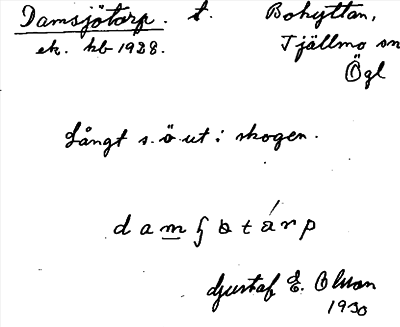 Damsjötorp. t. Bohyttan,
ek. kb 1928. Tjällmo sn
Ögl
Långt s. ö. ut i skogen.
Gustaf E. Olsson
1930